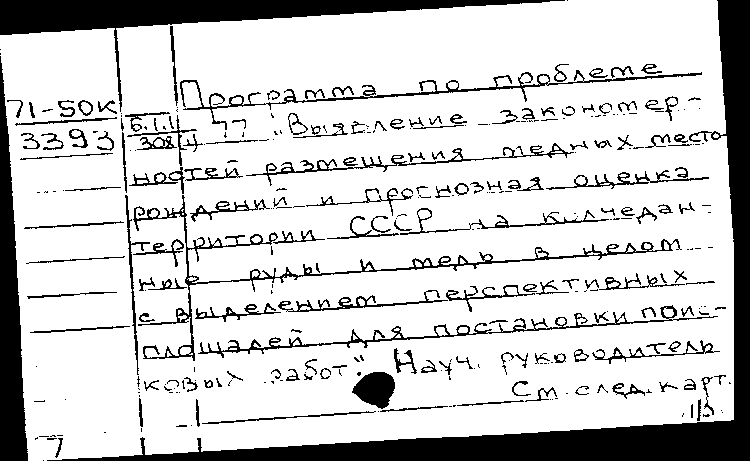 Программа по проблеме
71-50К
3393
б.1.1
308(4)
77 "Выявление закономер-
ностей размещения медных место-
рождений и прогнозная оценка
территории СССР на колчедан-
ные руды и медь в целом
с выделением перспективных
площадей для постановки поис-
ковых работ." Науч. руководитель
См. след. карт.
7